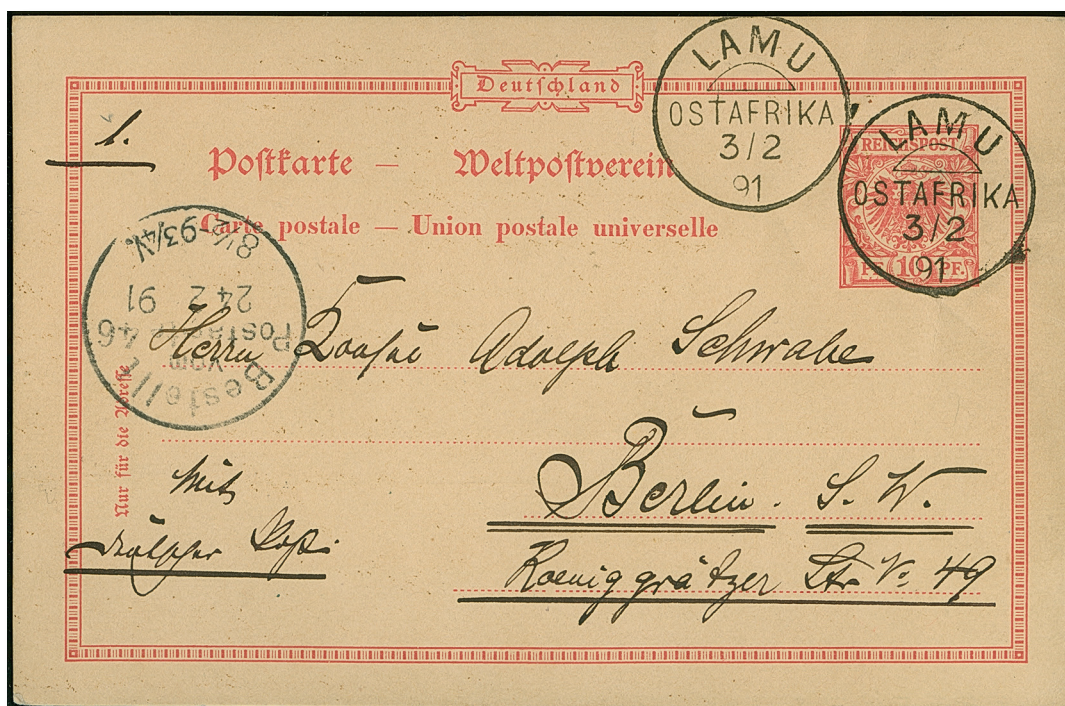 Deutschland
Postkarte — Weltpostverein
Carte postale — Union postale universelle
LAMU
OSTAFRIKA
3/2
91
LAMU
OSTAFRIKA
3/2
91
REICHSPOST
PF. 10 PF.
1.
Bestellt
vom
Postamte 46
24 2 91
8½-93/4V.
Herrn Adolph Schwabe
Berlin. S. W.
Koeniggrätzer Str. No. 49
Mit
deutscher Post.
Nur für die Adresse